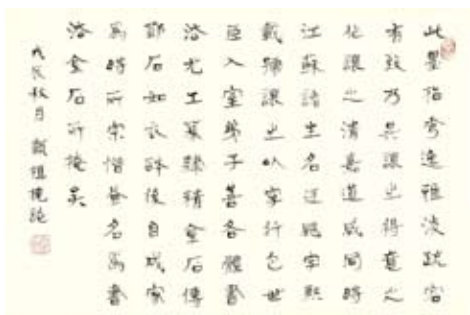 此墨逸雅淡疏宕
有致乃吳讓之得意之
化讓之清嘉道咸同時
江蘇諸生名廷颺字熙
載號讓之以字行包世
臣入室弟子善各體書
法尤工篆隸精金石傳
鄧石如衣缽後自成家
為時所宗惜畫名為書
法金石所掩矣
戊辰秋月